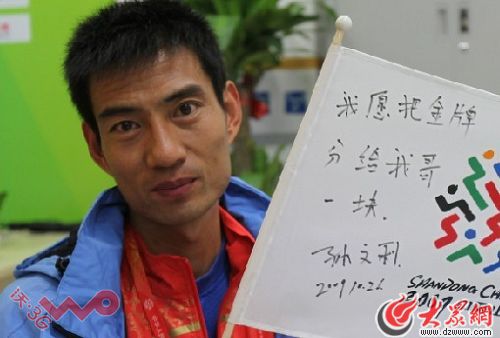 我愿把金牌
分给我哥
一块.
孙文利.
2009.10.26
SHANDONG CH
沃·3G
大众網
www.dzwww.com